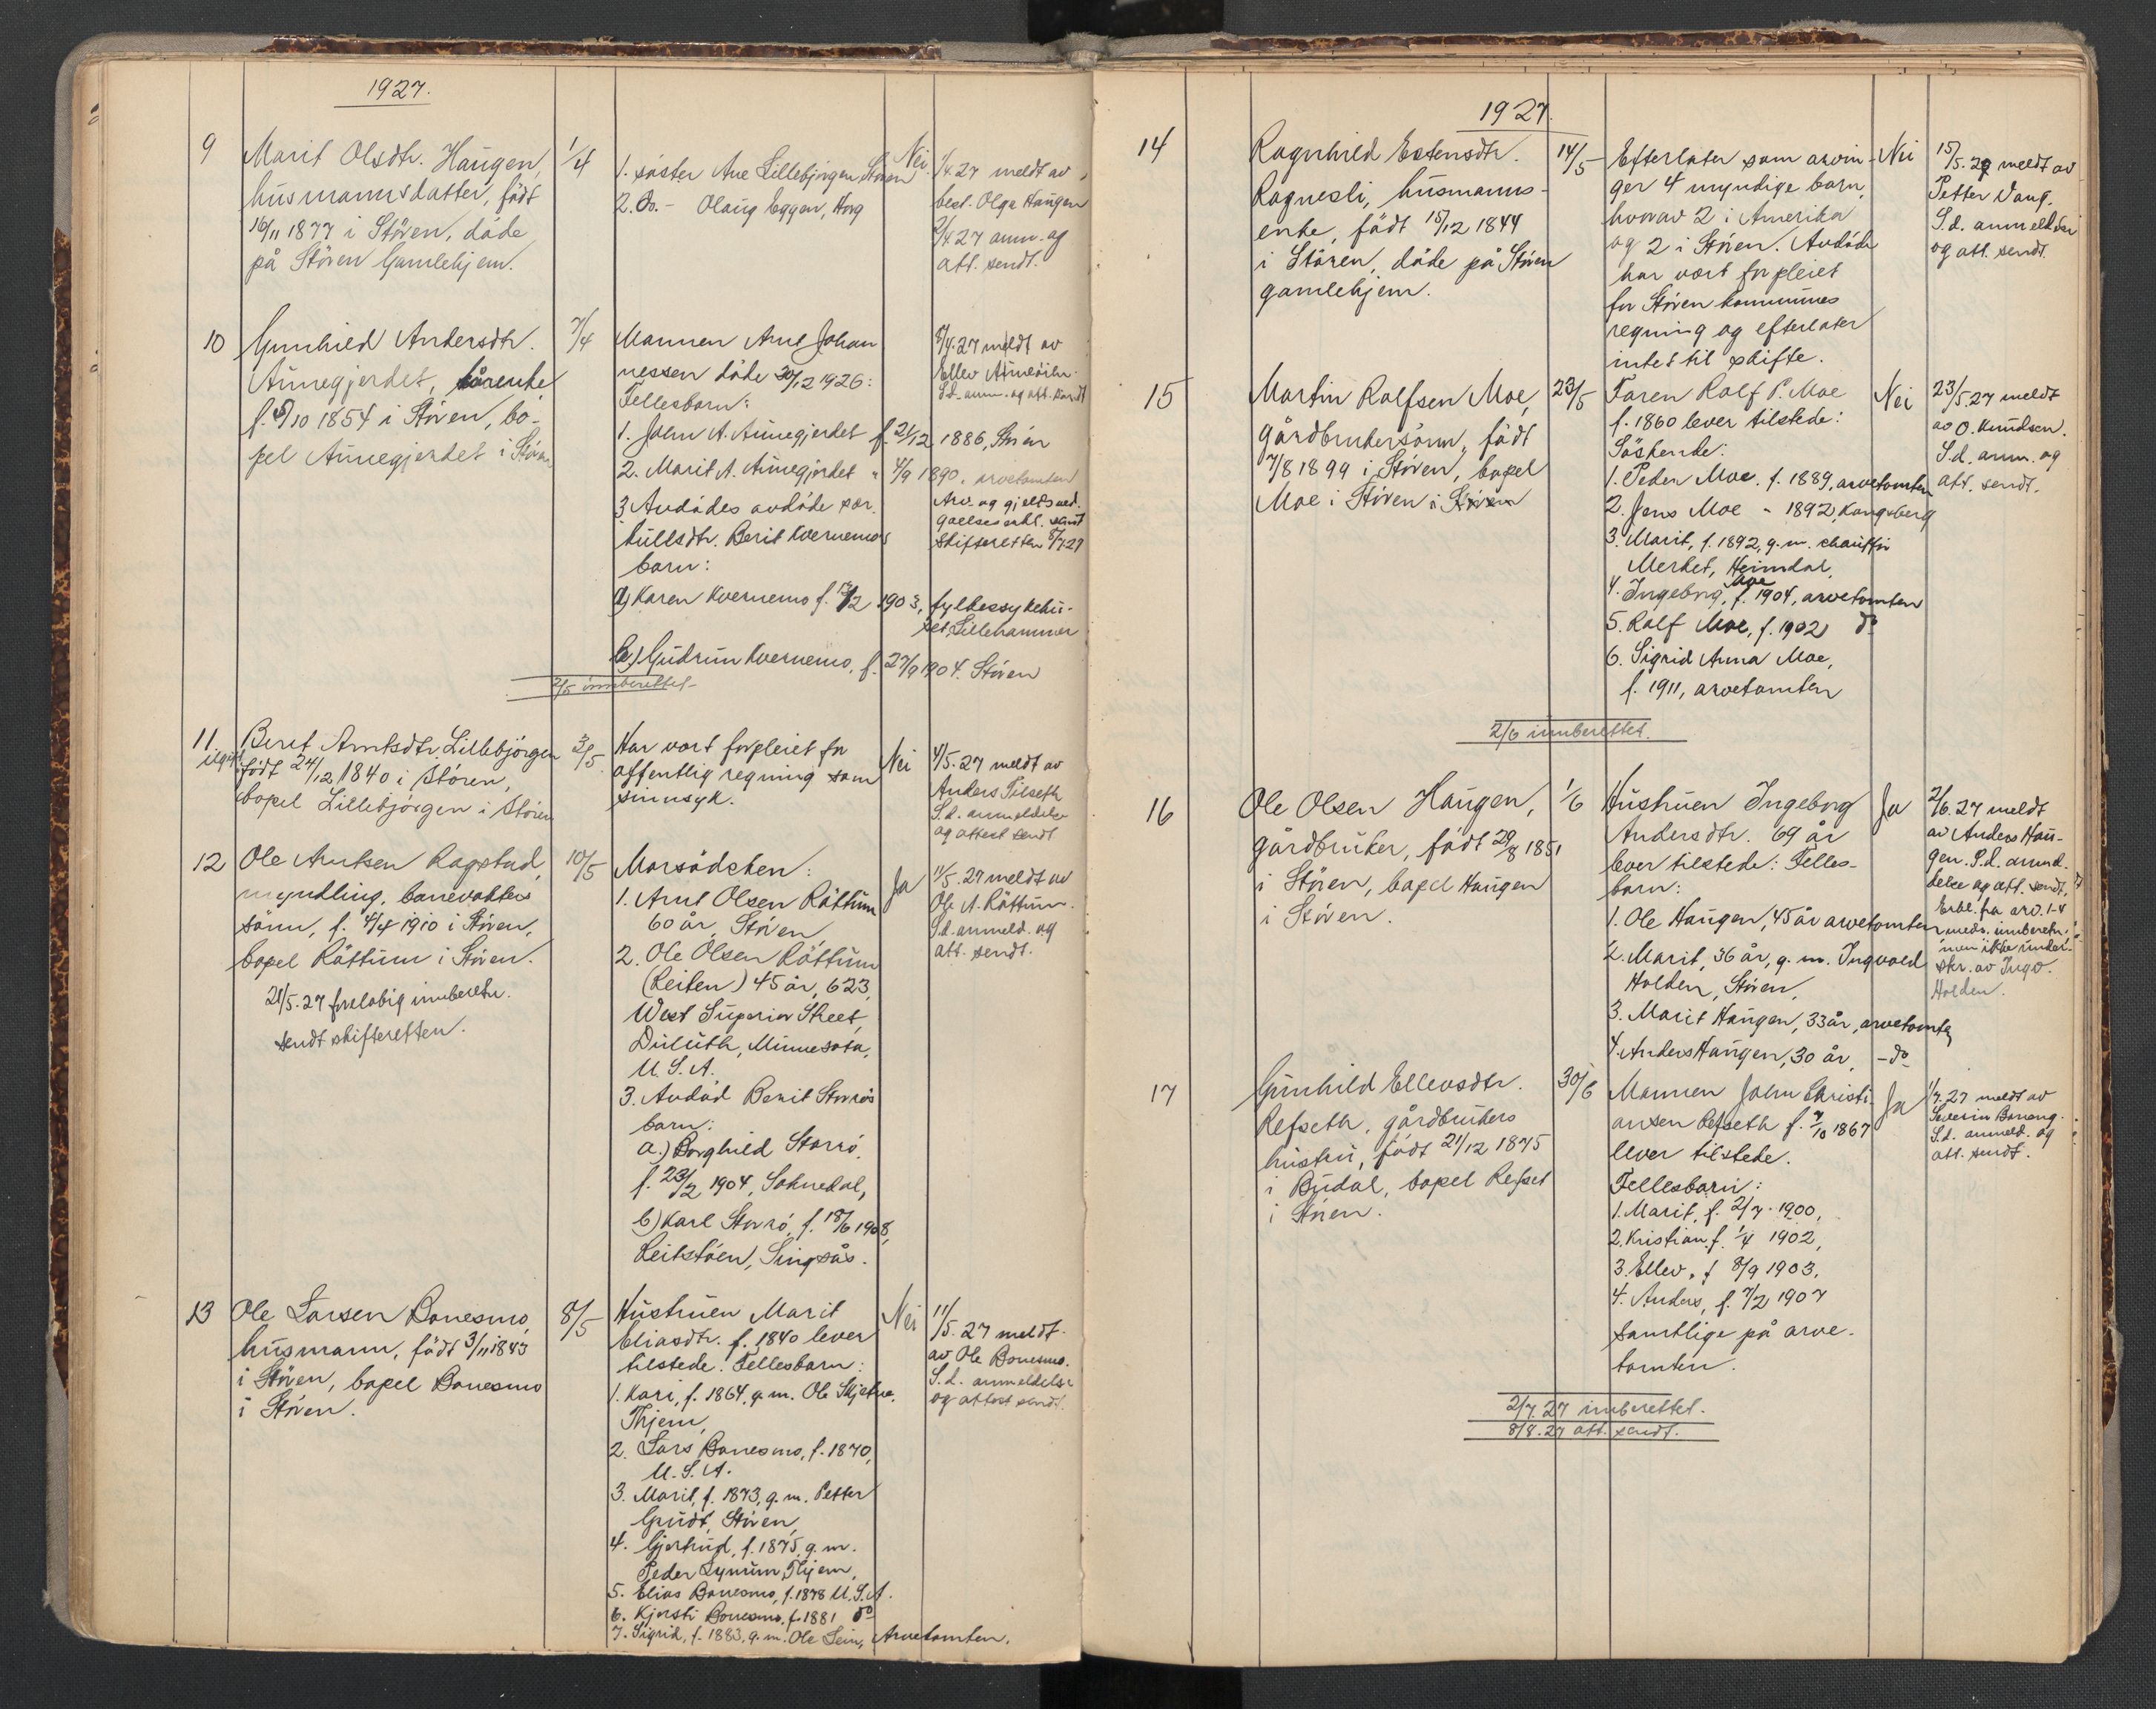 1927.
9
Marit Olsdtr. Haugen,
husmannsdatter, født
16/11 1877 i Støren, døde
på Støren Gamlehjem.
1/4
1. søster Ane Lillebjørgen Støren
2. do. - Olaug Eggen, Horg
Nei
1/4.27 meldt av
best. Olga Haugen
2/4 27 anm. og
att. sendt.
10
Gunhild Andersdtr.
Aunegjerdet, kårenke
f. 6/10 1854 i Støren, bo-
pel Aunegjerdet i Støren
7/4
Mannen Arnt Johan
nessen døde 30/12 1926:
Fellesbarn:
1. John A. Aunegjerdet f. 21/12 1886, Støren
2. Marit A. Aunegjerdet " 4/9 1890, arvetomten
3 Avdødes avdøde sær-
kullsdtr. Berit Kvernemos
barn:
a) Karen Kvernemo f. 12/2 1903, fylkessykehu-
set, Lillehammer
b) Gudrun Kvernemo, f. 27/9 1904. Støren
8/4.27 meldt av
Ellev
S.d. anm. og att. sendt
Arv- og gjeltsved.
gaelseserkl. sendt
skifteretten 8/7 27
2/5 innberettet
11
ugift
Beret Arntsdtr. Lillebjørgen
født 24/12 1840 i Støren,
bopel Lillebjørgen i Støren
3/5
Har vørt forpleiet for
offentlig regning som
sinnsyk.
Nei
4/5.27 meldt av
Anders Tilseth
S.d. anmeldelse
og attest sendt
12
Ole Arntsen Rogstad,
myndling, banevokters
sønn, f. 4/4 1910 i Støren,
bopel Røttum i Støren.
21/5.27 foreløbig innberetn.
sendt skifteretten.
10/5
Morsødsken:
1. Arnt Olsen Røttum
60 år, Støren
2. Ole Olsen Røttum
(Reiten) 45 år, 623,
West Superior Street,
Duluth, Minnesota,
U.S.A.
3. Avdød Berit Storrøs
barn:
a.) Borghild Storrø,
f. 23/2 1904, Soknedal,
b) Karl Storrø, f. 18/6 1908,
Reitstøen, Singsås.
Ja
11/5.27 meldt av
Ole A. Røttum.
S.d. anmeld. og
att. sendt.
13
Ole Larsen Bonesmo,
husmann, født 3/11 1843
i Støren, bopel Bonesmo
i Støren.
8/5
Hustruen Marit
Eliasdtr. f. 1840 lever
tilstede. Fellesbarn:
1. Kari, f. 1864, g.m. Ole Skjetne,
Thjem,
2. Lars Bonesmo, f. 1870,
U.S.A.
3. Marit, f. 1873, g.m. Petter
Gudt, Støren,
4. Gjertrud, f. 1875, g.m.
Peder Lynum, Thjem,
5. Elias Bonesmo, f. 1878 U.S.A.
6. Kjersti Bonesmo, f. 1881 do
7. Sigrid, f. 1883, g.m. Ole Lein, Arvetomten.
Nei
11/5.27 meldt
av Ole Bonesmo.
S.d. anmeldelse
og attest sendt.
1927.
14
Ragnhild Estensdtr.
Rognesli, husmanns-
enke, født 15/12 1844
i Støren, døde på Støren
gamlehjem.
14/5
Efterlater som arvin-
ger 4 myndige barn,
hvorav 2 i Amerika
og 2 i Støren. Avdøde
har vørt forpleiet
for Støren kommunes
regning og efterlater
intet til skifte.
Nei
15/5.27 meldt av
Petter Vang.
S.d. anmeldelse
og att. sendt.
15
Martin Rolfsen Moe,
gårdbrukersønn, født
7/8 1899 i Støren, bopel
Moe i Støren i Støren
23/5
Faren Rolf P. Moe
f. 1860 lever tilstede:
Søskende:
1. Peder Moe. f. 1889, arvetomten
2. Jens Moe - 1892, Kongsberg
3. Marit, f. 1892, g.m. chauffør
Merket, Heimdal,
4. Ingeborg Moe, f. 1904, arvetomten
5. Rolf Moe, f. 1902) do
6. Sigrid Anna Moe,
f. 1911, arvetomten
Nei
23/5.27 meldt
av O. Knudsen.
S.d. anm. og
att. sendt.
2/6 innberettet.
16
Ole Olsen Haugen,
gårdbruker, født 29/8 1851
i Støren, bopel Haugen
i Støren.
1/6
Hustruen Ingeborg
Andersdtr. 69 år
lever tilstede: Felles-
barn:
1. Ole Haugen, 45 år arvetomten
2. Marit, 36 år, g.m. Ingvald
Holden, Støren,
3. Marit Haugen, 33 år, arvetomten
4. Anders Haugen, 30 år, - do
Ja
2/6.27 meldt
av Anders Hau-
gen. S.d. anmel-
delse og att. sendt.
Erkl. fra arv. 1-4
meds. innberetn.
men ikke under-
skr. av Ingv.
Holden.
17
Gunhild Ellevsdtr.
Refseth, gårdbrukers
hustru, født 21/12 1875
i Budal, bopel Refset
i Støren.
30/6
Mannen John Christi-
ansen Refseth f. 7/10 1867
lever tilstede.
Fellesbarn:
1. Marit, f. 2/7 1900,
2. Kristian f. 1/4 1902,
3. Ellev, f 8/9 1903,
4. Anders, f. 7/2 1907
samtlige på arve-
tomten.
Ja
1/7.27 meldt av
Severin
S.d. anmeld. og
att. sendt.
2/7.27 innberettet.
8/8.27 att. sendt.